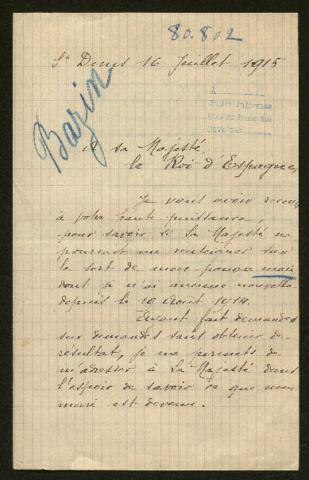 80.802
St Denis 16 Juillet 1915
Bazin
A sa Majesté
le Roi d'Espagne,
Je vous avoir recours
à votre haute puissance,
pour savoir si Sa Majesté ne
pourrait me renseigner sur
le sort de mon pauvre mari
dont je n'ai aucune nouvelle
depuis le 10 Août 1914.
Ayant fait demandes
sur demandes sans obtenir de
résultat, je me permets de
m'adresser à Sa Majesté dans
l'espoir de savoir ce que mon
mari est devenu.